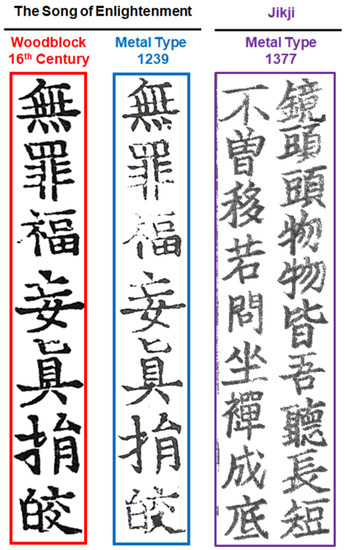 The Song of Enlightenment
Jikji
Woodblock
16th Century
Metal Type
1239
Metal Type
1377
無罪福妄眞捐皎
無罪福妄眞捐皎
鏡頭頭物物皆吾聽長短
不曾移若問坐禪成底